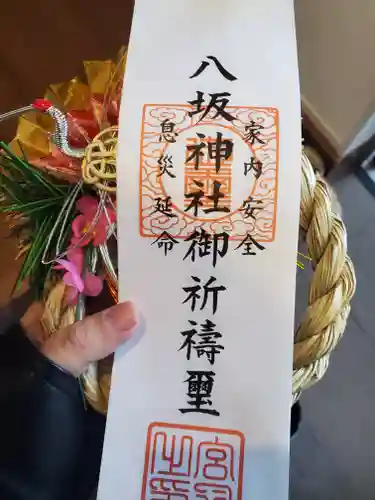 家内安全
八坂神社御祈祷璽
息災延命